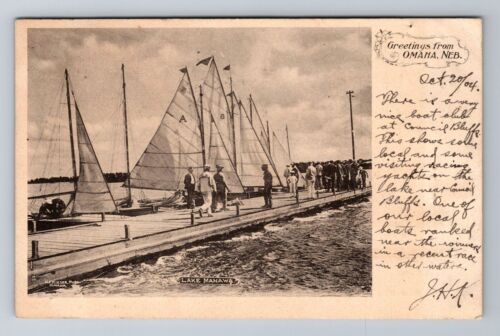 Greetings from
OMAHA, NEB.
Oct. 20/04
There is a very
nice boat club
at Council Bluffs.
This shows some
local and some
visiting racing
yachts on the
lake near Council
Bluffs. One of
our local
boats ranked
near the winners
in a recent race
in other waters.
J.H.K.
A
LAKE MANAWA
OMAHA.